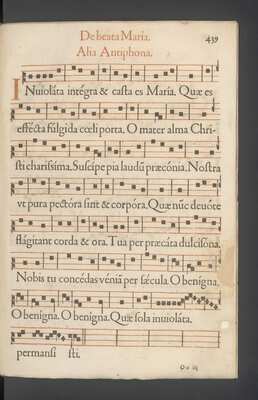 De beata Maria.
439
Alia Antiphona.
INuiolata intégra & casta es Maria. Quæ es
effécta fúlgida cœli porta. O mater alma Chri-
sti charissima. Suscipe pia laudū præcónia. Nostra
vt pura pectóra sint & corpóra. Quæ nūc deuóte
flágitant corda & ora. Tua per præcáta dulcisona.
Nobis tu concédas véniā per sǽcula. O benigna.
O benigna. O benigna. Quæ sola inuiolata.
permansi sti.
Oo iij